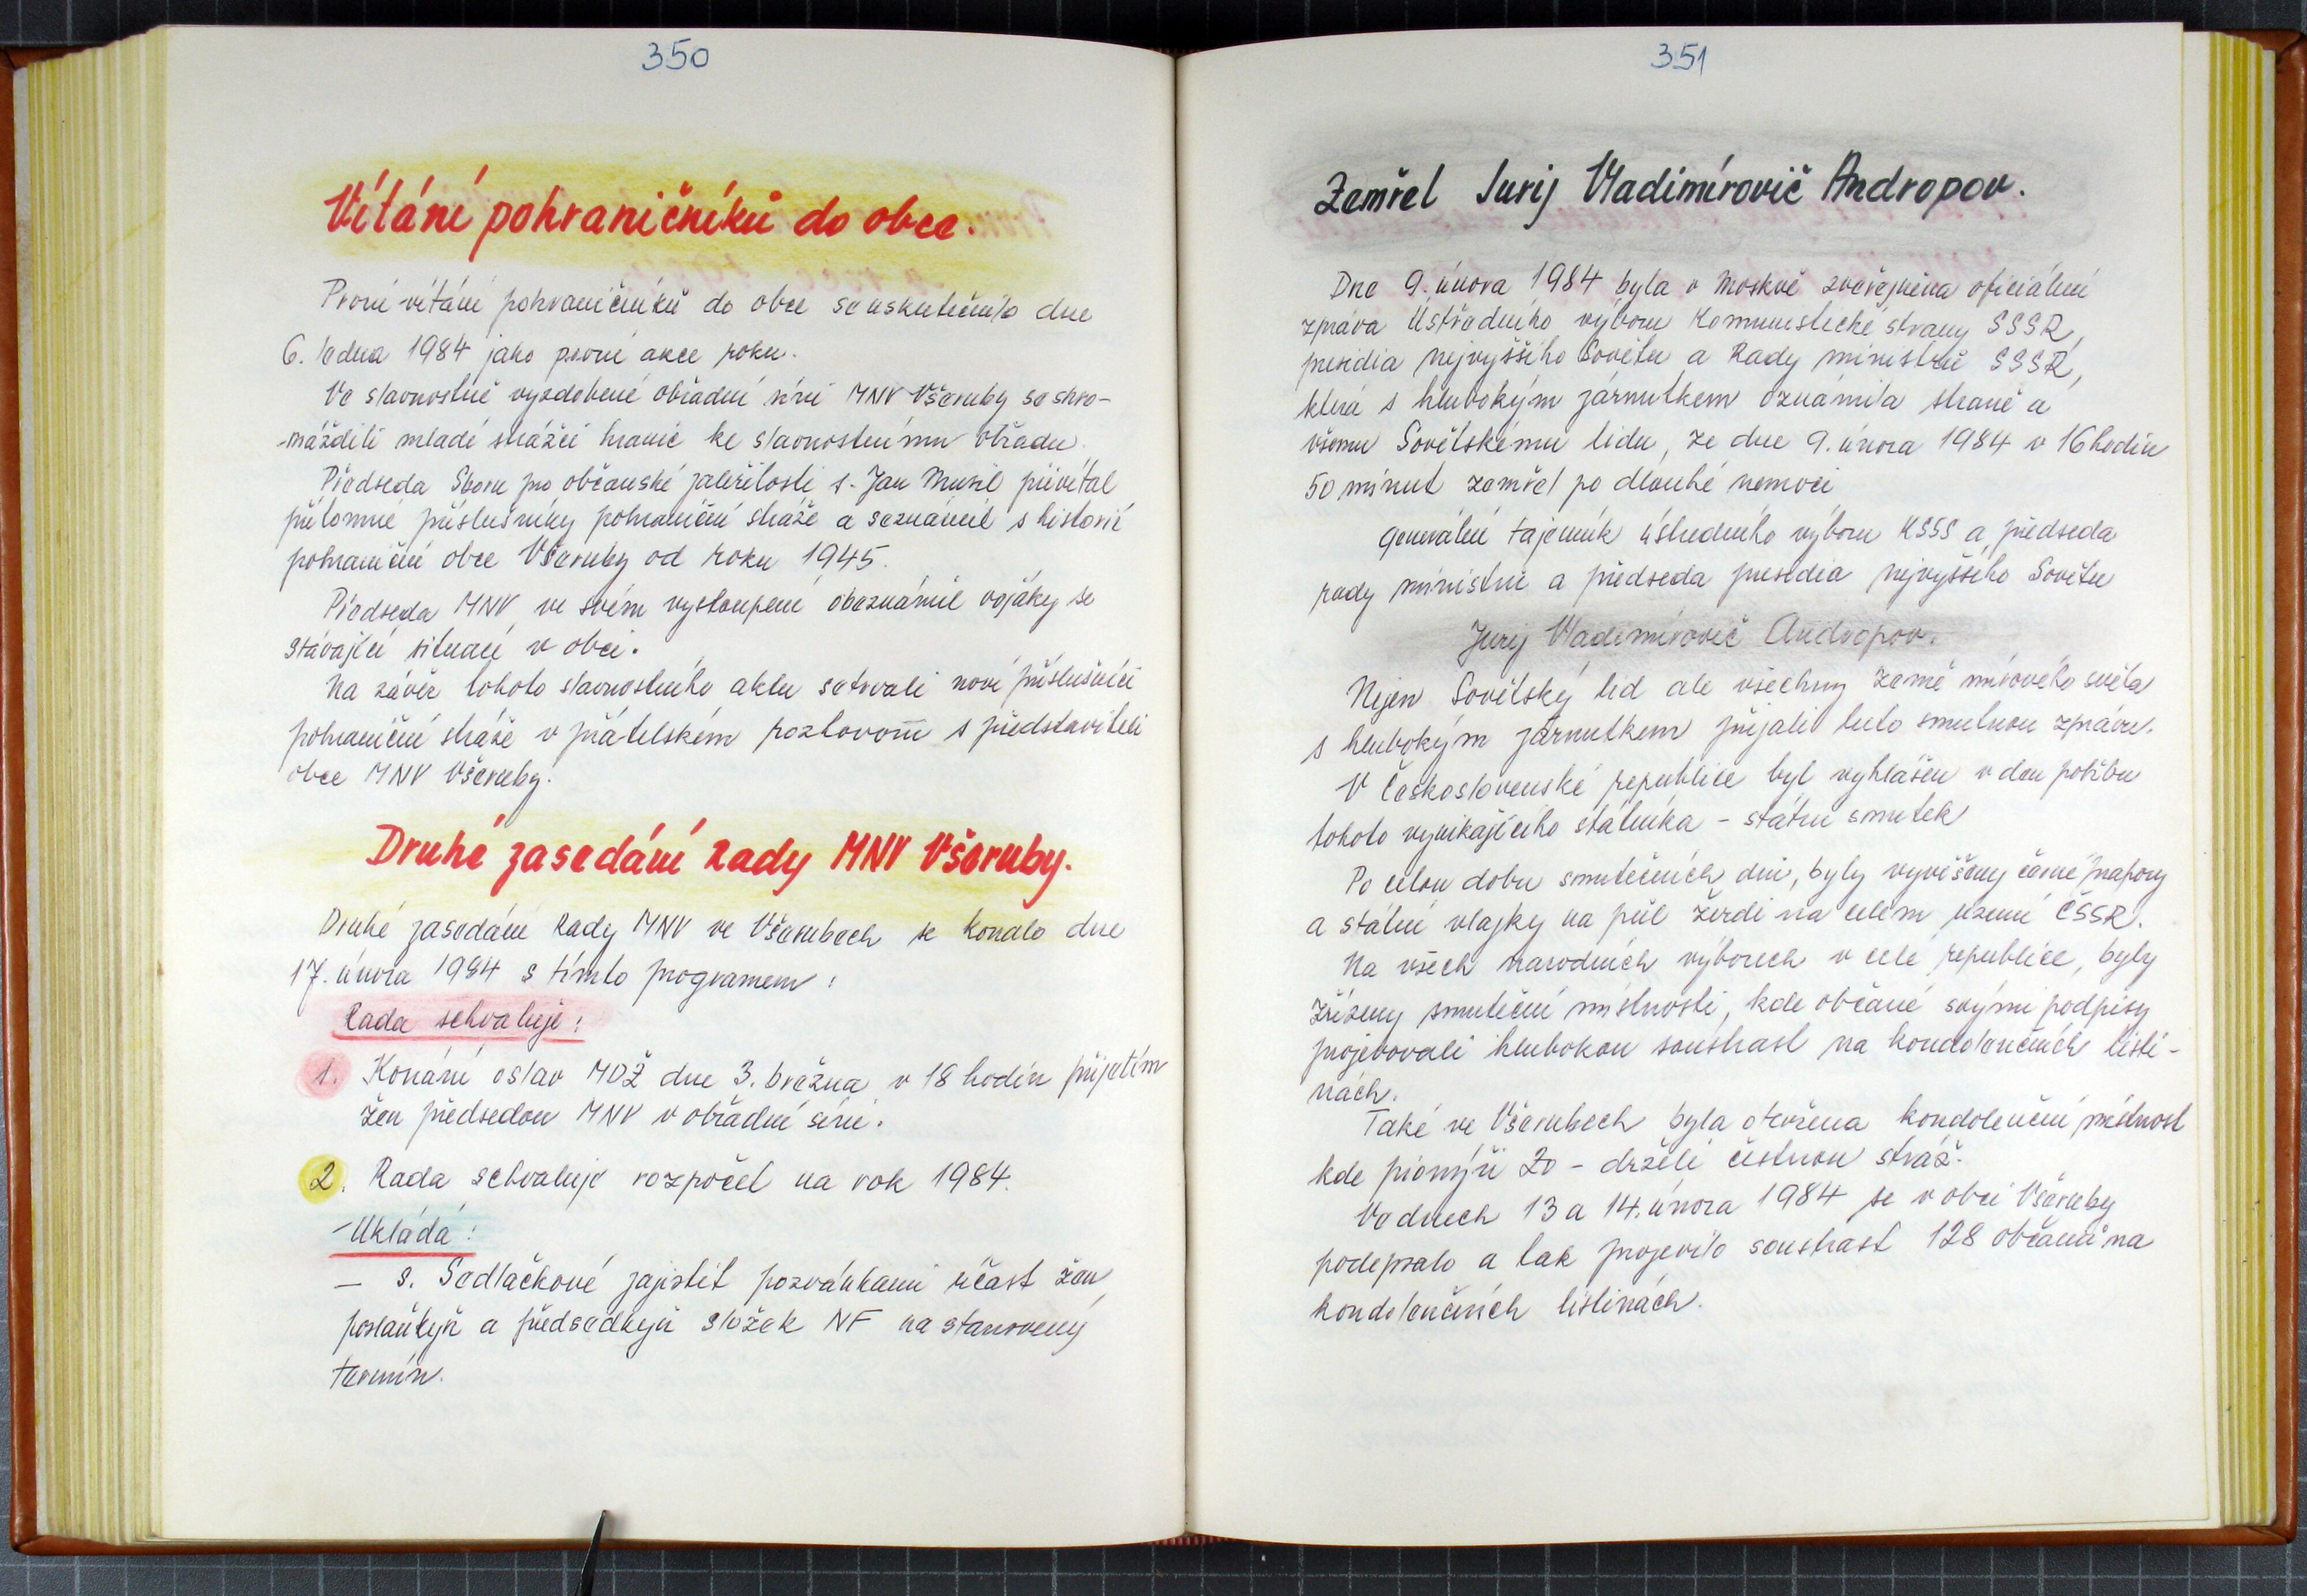 350
Vítání pohraničníků do obce.
První vítání pohraničníků do obce se uskutečnilo dne
6. ledna 1984 jako první akce roku.
Ve slavnostně vyzdobené obřadní síni MNV Všeruby se shro-
-máždili mladé strážci hranic ke slavnostnímu obřadu.
Předseda Sboru pro občanské záležitosti s. Jan Musil přivítal
přítomné příslušníky pohraniční stráže a seznámil s historií
pohraniční obce Všeruby od roku 1945.
Předseda MNV ve svém vystoupení obeznámil vojáky se
stávající situací v obci.
Na závěr tohoto slavnostního aktu setrvali noví příslušníci
pohraniční stráže v přátelském rozhovoru s představiteli
obce MNV Všeruby.
Druhé zasedání Rady MNV Všeruby.
Druhé zasedání Rady MNV ve Všerubech se konalo dne
17. února 1984 s tímto programem:
Rada schvaluje:
1. Konání oslav MDŽ dne 3. března v 18 hodin přijetím
žen předsedou MNV v obřadní síni.
2. Rada schvaluje rozpočet na rok 1984.
-Ukládá:
- s. Sedláčkové zajistit pozvánkami účast žen,
poslankyň a předsedkyň složek NF na stanovený
termín.
351
Zemřel Jurij Vladimírovič Andropov.
Dne 9. února 1984 byla v Moskvě zveřejněna oficiální
zpráva Ústředního výboru Komunistické strany SSSR,
presidia nejvyššího Sovětu a Rady ministrů SSSR,
která s hlubokým zármutkem oznámila straně a
všemu Sovětskému lidu, že dne 9. února 1984 v 16 hodin
50 minut zemřel po dlouhé nemoci
generální tajemník ústředního výboru KSSS a předseda
rady ministrů a předseda presidia nejvyššího Sovětu
Jurij Vladimírovič Andropov.
Nejen Sovětský lid ale všechny země mírového světa
s hlubokým zármutkem přijali tuto smutnou zprávu.
V Československé republice byl vyhlášen v den pohřbu
tohoto vynikajícího státníka - státní smutek
Po celou dobu smutečních dní, byly vyvěšeny černé prapory
a státní vlajky na půl žerdi na celém území ČSSR.
Na všech národních výborech v celé republice, byly
zřízeny smuteční místnosti, kde občané svými podpisy
projevovali hlubokou soustrast na kondolenčních listi-
nách.
Také ve Všerubech byla otevřena kondolenční místnost
kde pionýři ZD - drželi čestnou stráž.
Ve dnech 13 a 14. února 1984 se v obci Všeruby
podepsalo a tak projevilo soustrast 128 občanů na
kondolenčních listinách.